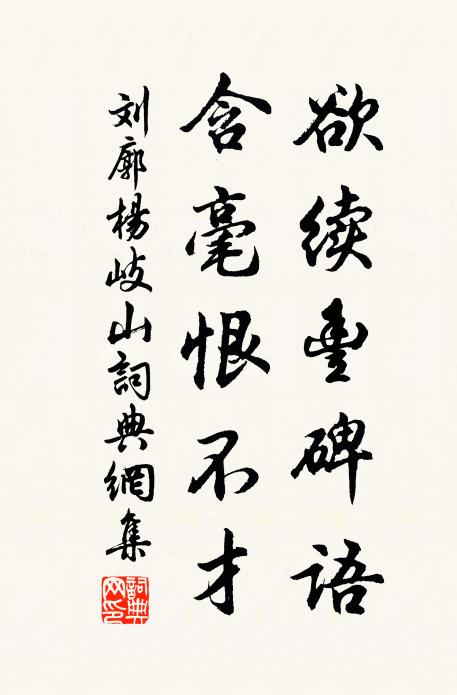 欲续豐碑語
含毫恨不才
刘廓楊岐山詞典網集
詞典网印